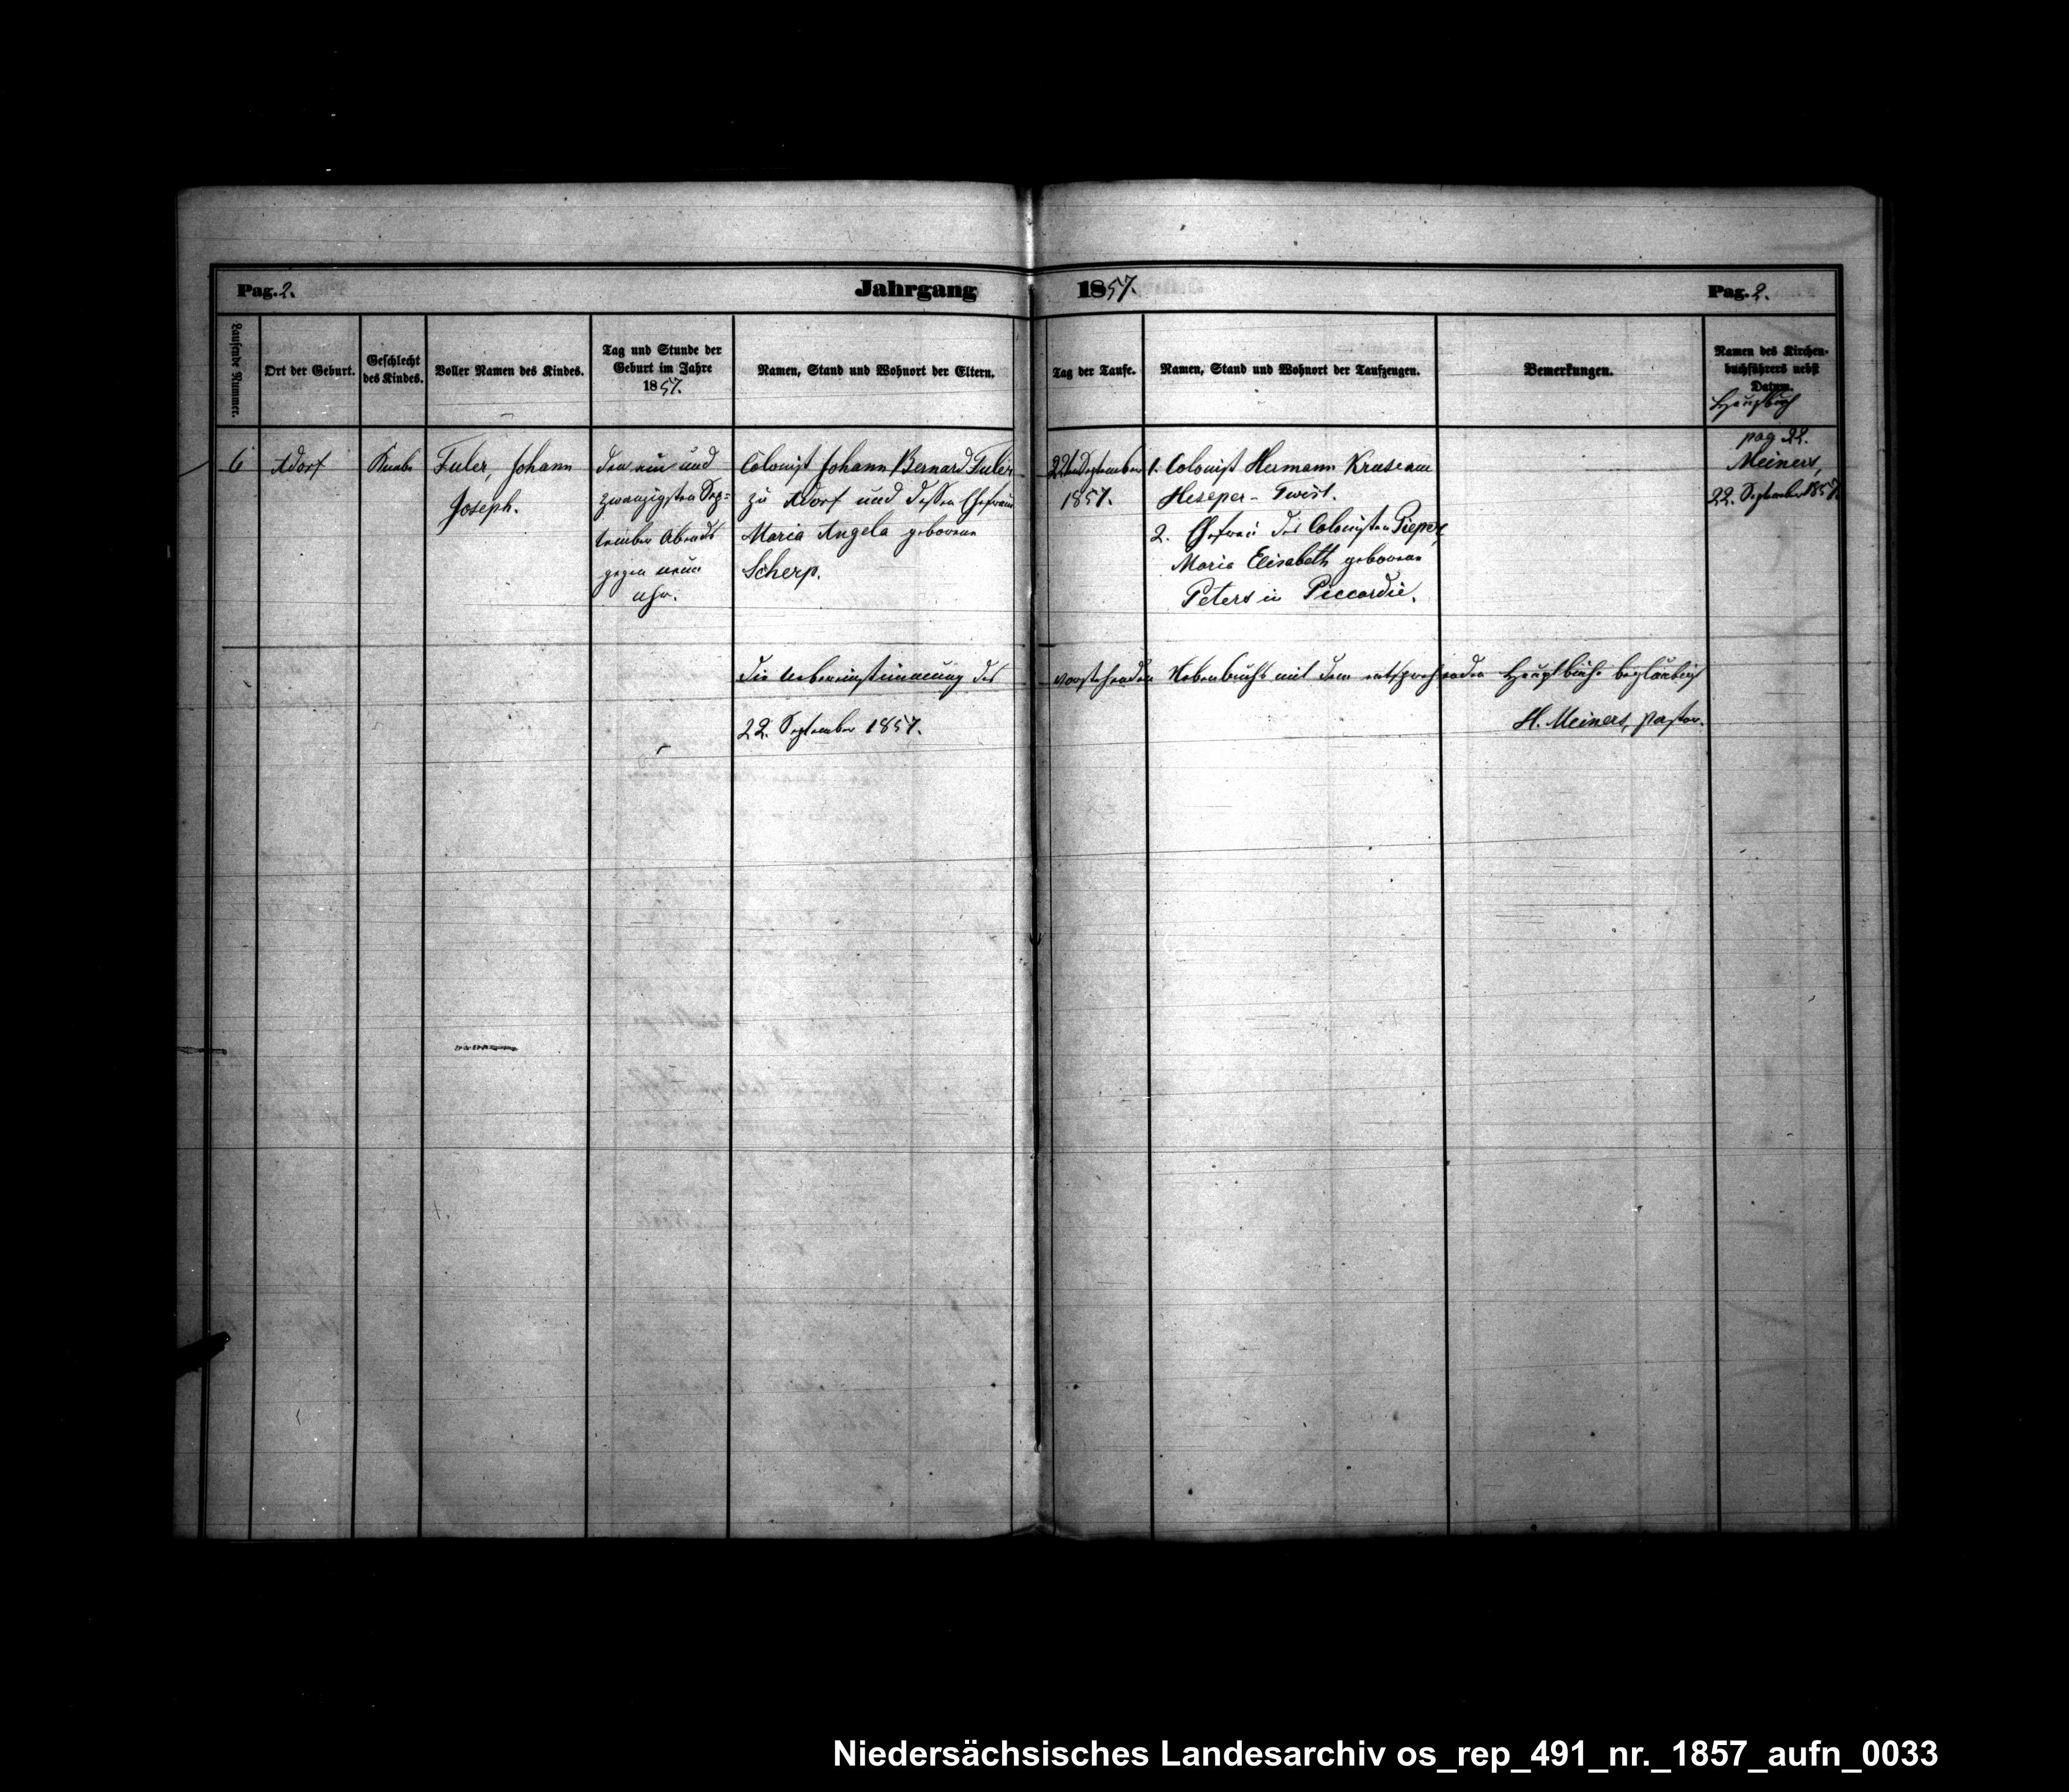 Pag. 2.
Jahrgang
1857.
Pag. 2.
Laufende Nummer.
Ort der Geburt.
Geschlecht
des Kindes.
Voller Namen des Kindes.
Tag und Stunde der
Geburt im Jahre
1857.
Namen, Stand und Wohnort der Eltern.
Tag der Taufe.
Namen, Stand und Wohnort der Taufzeugen.
Bemerkungen.
Namen des Kirchen-
buchführers nebst
Datum.
Hauptbuch
pag 22.
6
Adorf
Knabe
Fuler, Johann
Joseph.
den ein und
zwanzigsten Sep=
tember Abends
gegen neun
Uhr.
Colonist Johann Bernard Fuler
zu Adorf und dessen Ehefrau
Maria Angela geborene
Scherp.
22ten September
1857.
1. Colonist Hermann Kruse am
Heseper-Twist.
2. Ehefrau des Colonisten Pieper,
Maria Elisabeth geborene
Peters in Piccardie.
Meiners,
22. September 1857.
Die Uebereinstimmung des vorstehenden Nebenbuchs mit dem entsprechenden Hauptbuche beglaubigt
22. September 1857.
H. Meiners, Pastor.
Niedersächsisches Landesarchiv os_rep_491_nr._1857_aufn_0033